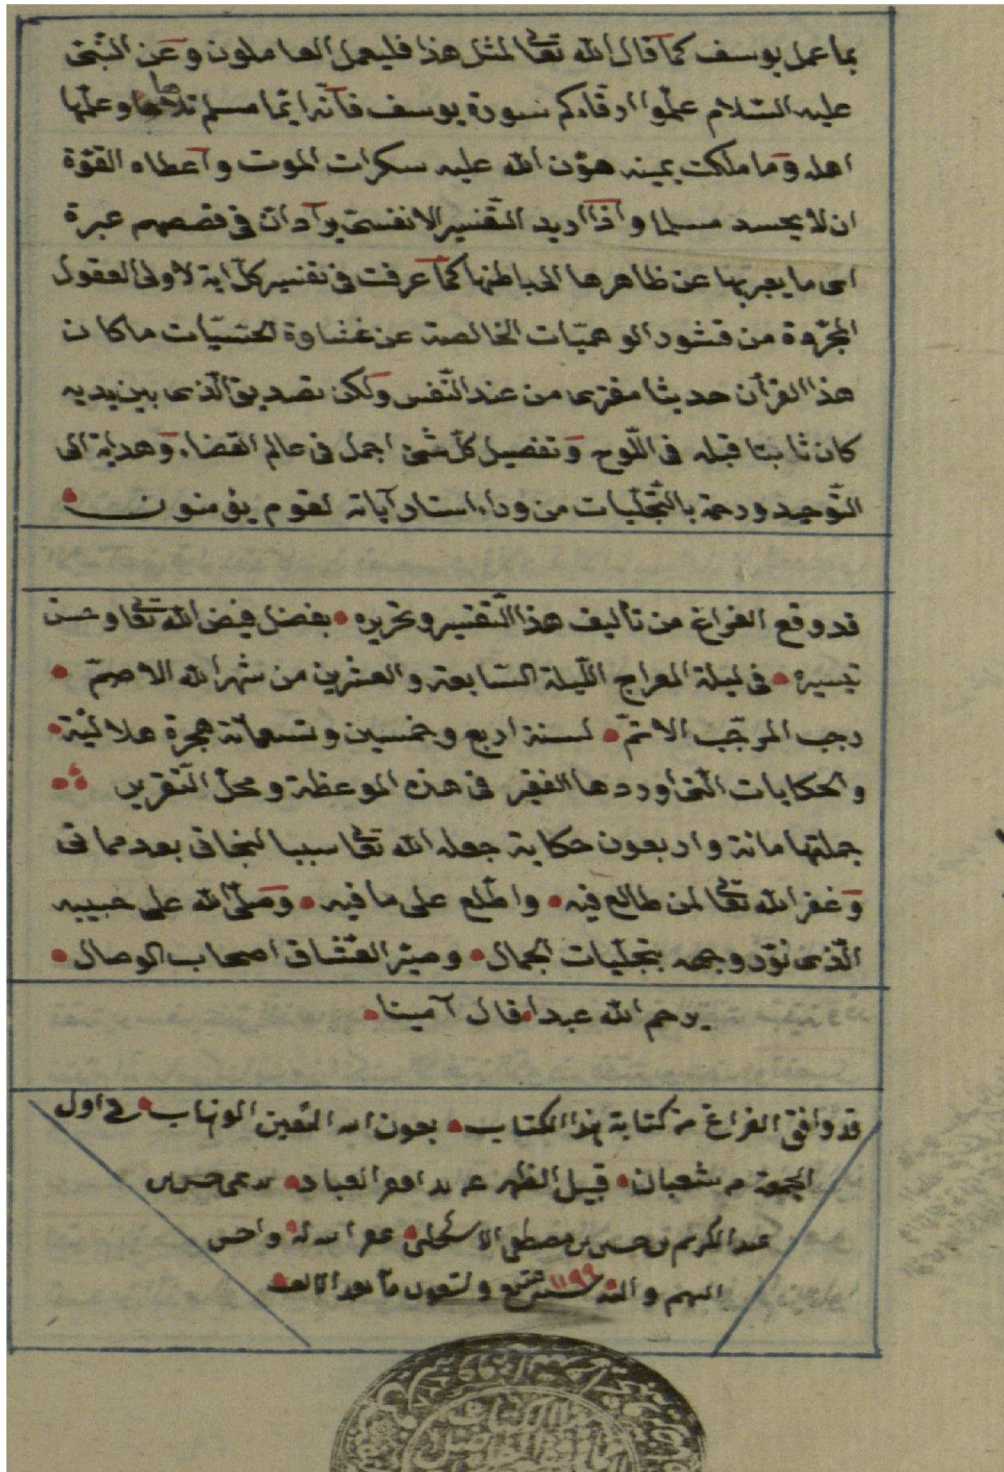 بما عمل يوسف كما قال الله تعالى لمثل هذا فليعمل العاملون وعن النبى
عليه السلام علموا ارقاءكم سورة يوسف فانه ايما مسلم تلاها وعلمها
اهله وما ملكت يمينه هوّن الله عليه سكرات الموت واعطاه القوة
ان لا يحسد مسلما واذا اريد التفسير الانفسى يراد ان فى قصصهم عبرة
اى ما يعبر بها عن ظاهرها الى باطنها كما عرفت فى تفسير كل اية لاولى العقول
المجردة من قشور الوهميات الخالصة عن غشاوة الحسيات ما كان
هذا القرآن حديثا مفترى من عند النفس ولكن تصديق الذى بين يديه
كان ثابتا قبله فى اللوح وتفصيل كل شئ اجمل فى عالم القضاء وهداية الى
التوحيد ورحمة بالتجليات من وراء استار آياته لقوم يؤمنون
قد وقع الفراغ من تأليف هذا التفسير وتحريره بفضل فيض الله تعالى وحسن
تيسيره فى ليلة المعراج الليلة السابعة والعشرين من شهر الله الاصمّ
رجب المرجّب الاتمّ لسنة اربع وخمسين وتسعمائة هجرة هلالية
والحكايات التى اوردها الفقير فى هذه الموعظة ومحل التقرير
جملتها مائة واربعون حكاية جعله الله تعالى سببا لنجاتى بعد مماتى
وغفر الله تعالى لمن طالع فيه واطلع على ما فيه وصلى الله على حبيبه
الذى نوّر وجهه بتجليات الجمال وميّز العشاق اصحاب الوصال
يرحم الله عبدا قال آمينا
قد وافق الفراغ من كتابة هذا الكتاب بعون الله المعين الوهاب فى اول
الجمعة من شعبان قبيل الظهر عن يد افقر العباد
عبد الكريم بن حسن بن مصطفى غفر الله له واحسن
اليهم واليه سنة ١١٩٩ تسع وتسعون مائة بعد الالف